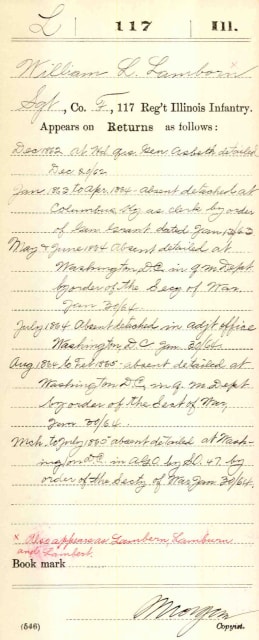 L 117 Ill.
William L. Lamborn x
Sgt, Co. F, 117 Reg't Illinois Infantry.
Appears on Returns as follows:
Dec 1862 at Hd Qrs Gen Asboth detailed
Dec 20/62
Jan. 1863 to Apr. 1864 - absent detached at
Columbus, Ky as clerk by order
of Gen Grant dated Jan 12/63
May & June 1864 Absent detailed at
Washington D.C. in q m Dept
by order of the Secy of War,
Jan 30/64.
July 1864 Absent detached in adjt office
Washington D.C Jan. 30/64.
Aug 1864 to Feb 1865 - absent detailed at
Washington D.C, in q. m Dept
by order of the Sect of War,
Jan 30/64.
Mch. to July 1865 absent detailed at Wash-
ington D.C. in A.G.O. by S.O. 47. by
order of the Secty of War Jan 30/64.
x Also appears as Lambern, Lamburn
and Lambert.
Book mark
Morgan
(546) Copyist.